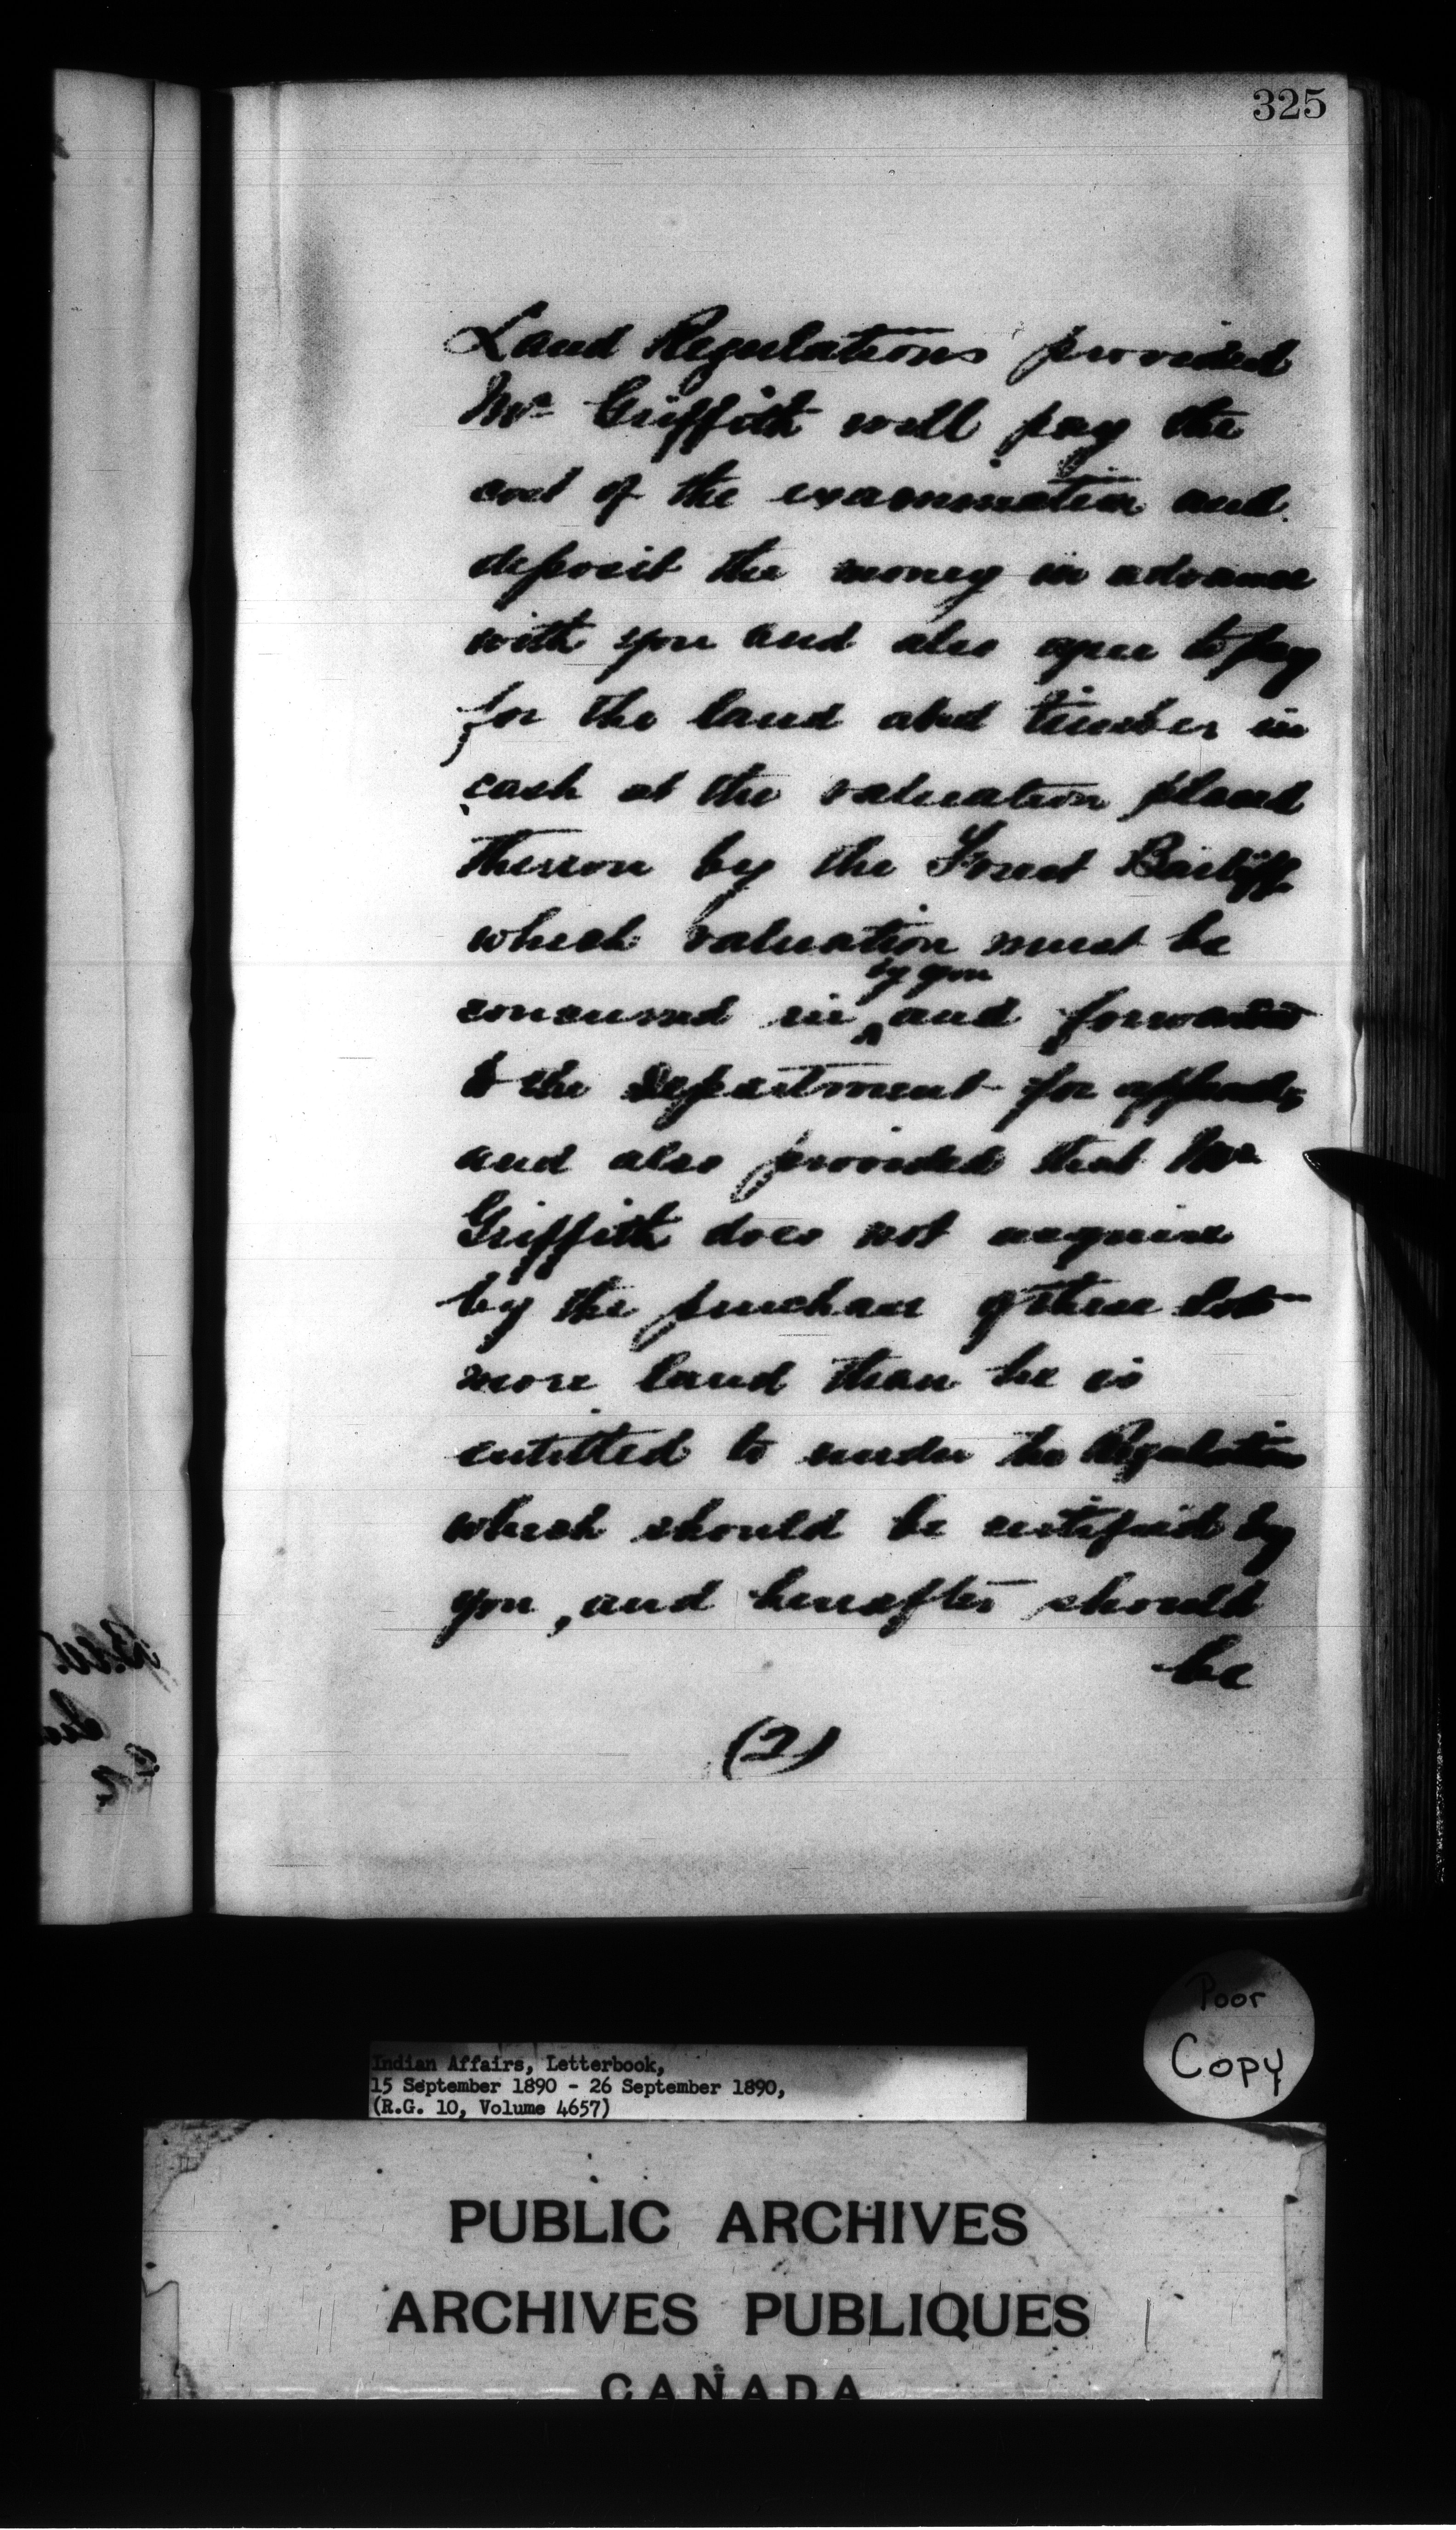 325
Land Regulations provided
Mr Griffith will pay the
cost of the examination and
deposit the money in advance
with you and also agree to pay
for the land and timber in
cash at the valuation placed
thereon by the Forest Bailiff
which valuation must be
by you
concurred in ^ and forwarded
to the Department for approval,
and also provided that Mr
Griffith does not acquire
by the purchase of these lots
more land than he is
entitled to under the Regulations
which should be certified by
you, and hereafter should
be
(2)
Poor
Copy
Indian Affairs, Letterbook,
15 September 1890 - 26 September 1890,
(R.G. 10, Volume 4657)
PUBLIC ARCHIVES
ARCHIVES PUBLIQUES
CANADA